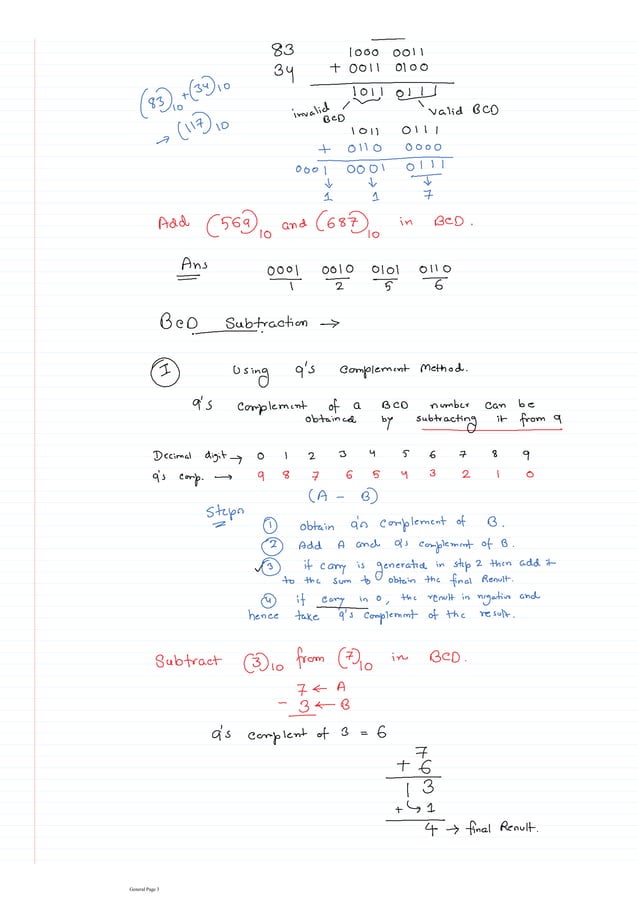 83 1000 0011
34 + 0011 0100
1011 0111
(83)10 + (34)10
→ (117)10
invalid BCD valid BCD
1011 0111
+ 0110 0000
0001 0001 0111
↓ ↓ ↓
1 1 7
Add (569)10 and (687)10 in BCD.
Ans 0001 0010 0101 0110
1 2 5 6
BCD Subtraction →
I Using 9's Complement Method.
9's Complement of a BCD number can be
obtained by subtracting it from 9
Decimal digit → 0 1 2 3 4 5 6 7 8 9
9's comp. → 9 8 7 6 5 4 3 2 1 0
(A - B)
Steps
1 obtain 9's complement of B.
2 Add A and 9's complement of B.
3 if carry is generated in step 2 then add it
to the sum to obtain the final Result.
4 if carry is 0, the result is negative and
hence take 9's complement of the result.
Subtract (3)10 from (7)10 in BCD.
7 ← A
- 3 ← B
9's complent of 3 = 6
7
+ 6
1 3
+ ↳ 1
4 → final Result.
General Page 3